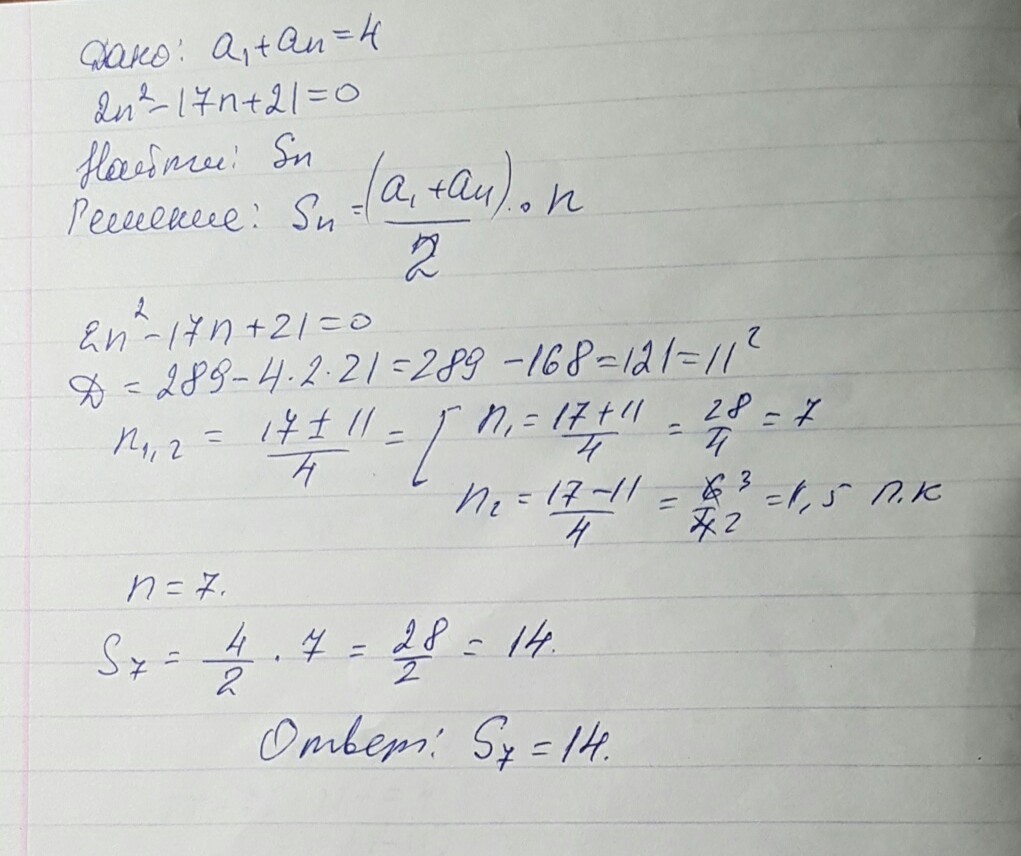 Дано: a₁+aₙ=4
2n²-17n+21=0
Найти: Sₙ
Решение: Sₙ=(a₁+aₙ)/2·n
2n²-17n+21=0
Д=289-4·2·21=289-168=121=11²
n₁,₂=(17±11)/4=[n₁=(17+11)/4=28/4=7
n₂=(17-11)/4=6/4 3/2=1,5 п.к
n=7.
S₇=4/2·7=28/2=14.
Ответ: S₇=14.